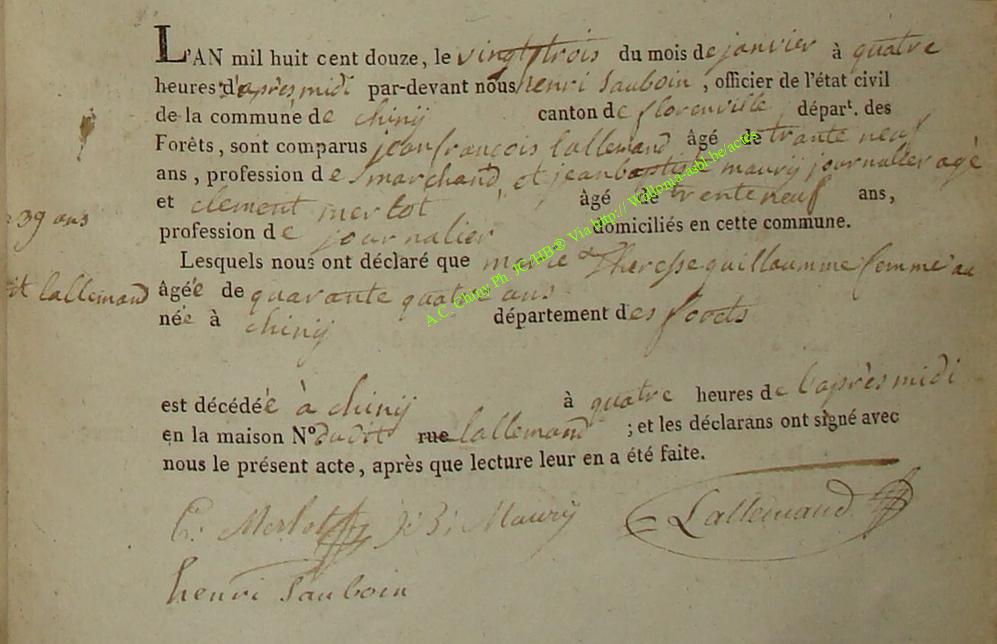 L'AN mil huit cent douze, le vingt trois du mois de janvier à quatre
heures d'apres midi par-devant nous henri Sauboin, officier de l'état civil
de la commune de chinÿ canton de florenville départ. des
Forêts, sont comparus jean françois lallemand âgé de trante neuf
ans, profession de marchand, et jean baptiste maury journallier agé
39 ans
et clement merlot âgé de trente neuf ans,
profession de journalier domiciliés en cette commune.
Lesquels nous ont déclaré que marie Theresse guilloumme femme au
dit lallemand âgée de quarante quatre ans
née à chinÿ département des foorets
est décédée à chinÿ à quatre heures de l'après midi
en la maison Nº dudit rue lallemand ; et les déclarans ont signé avec
nous le présent acte, après que lecture leur en a été faite.
C. Merlot J: B: Maury Lallemand
henri Sauboin
A.C. Chiny Ph. JC/HB® Via http:// Wallonia-asbl.be/actes